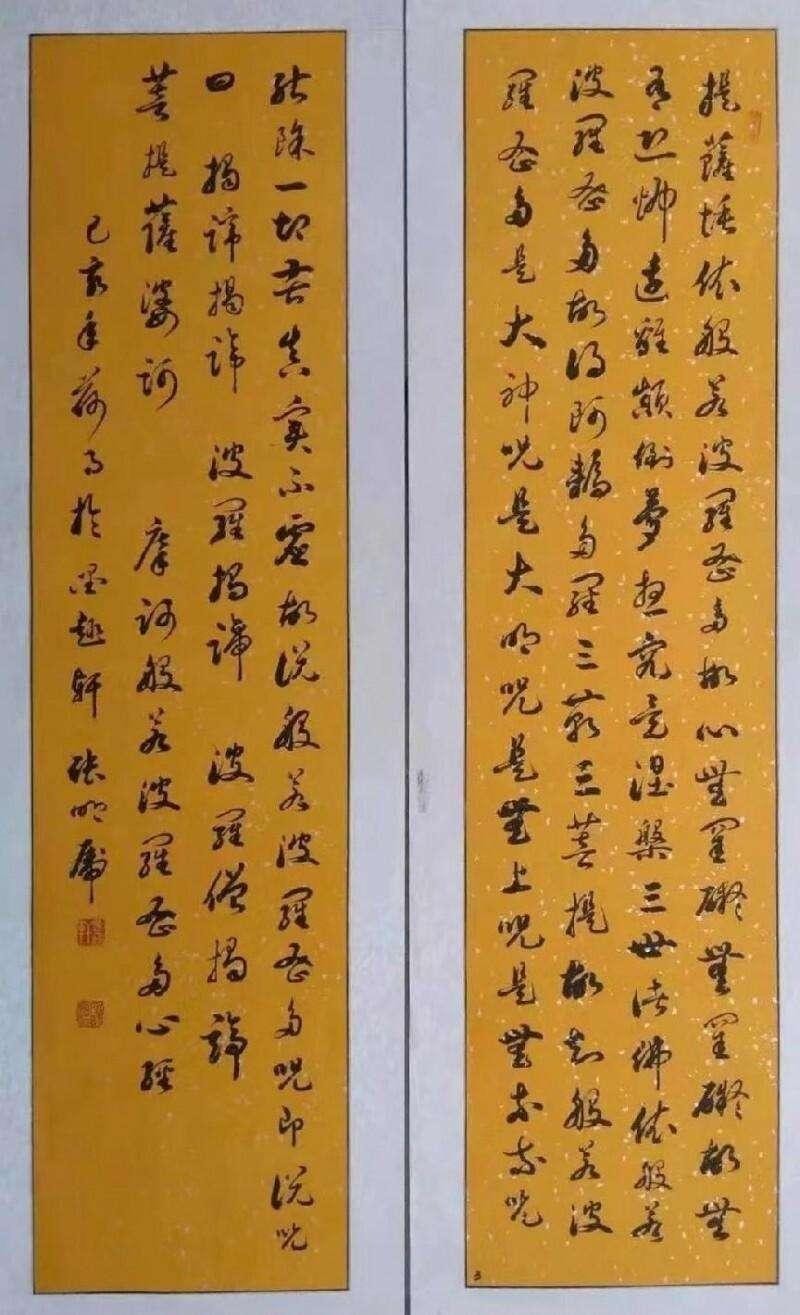 提薩埵依般若波羅蜜多故心無罣礙無罣礙故無
有恐怖遠離顛倒夢想究竟涅槃三世諸佛依般若
波羅蜜多故得阿耨多羅三藐三菩提故知般若波
羅蜜多是大神咒是大明咒是無上咒是無等等咒
能除一切苦真實不虛故說般若波羅蜜多咒即說咒
曰 揭諦揭諦 波羅揭諦 波羅僧揭諦
菩提薩婆訶 摩訶般若波羅蜜多心經
己亥年荷月於墨趣軒 張明